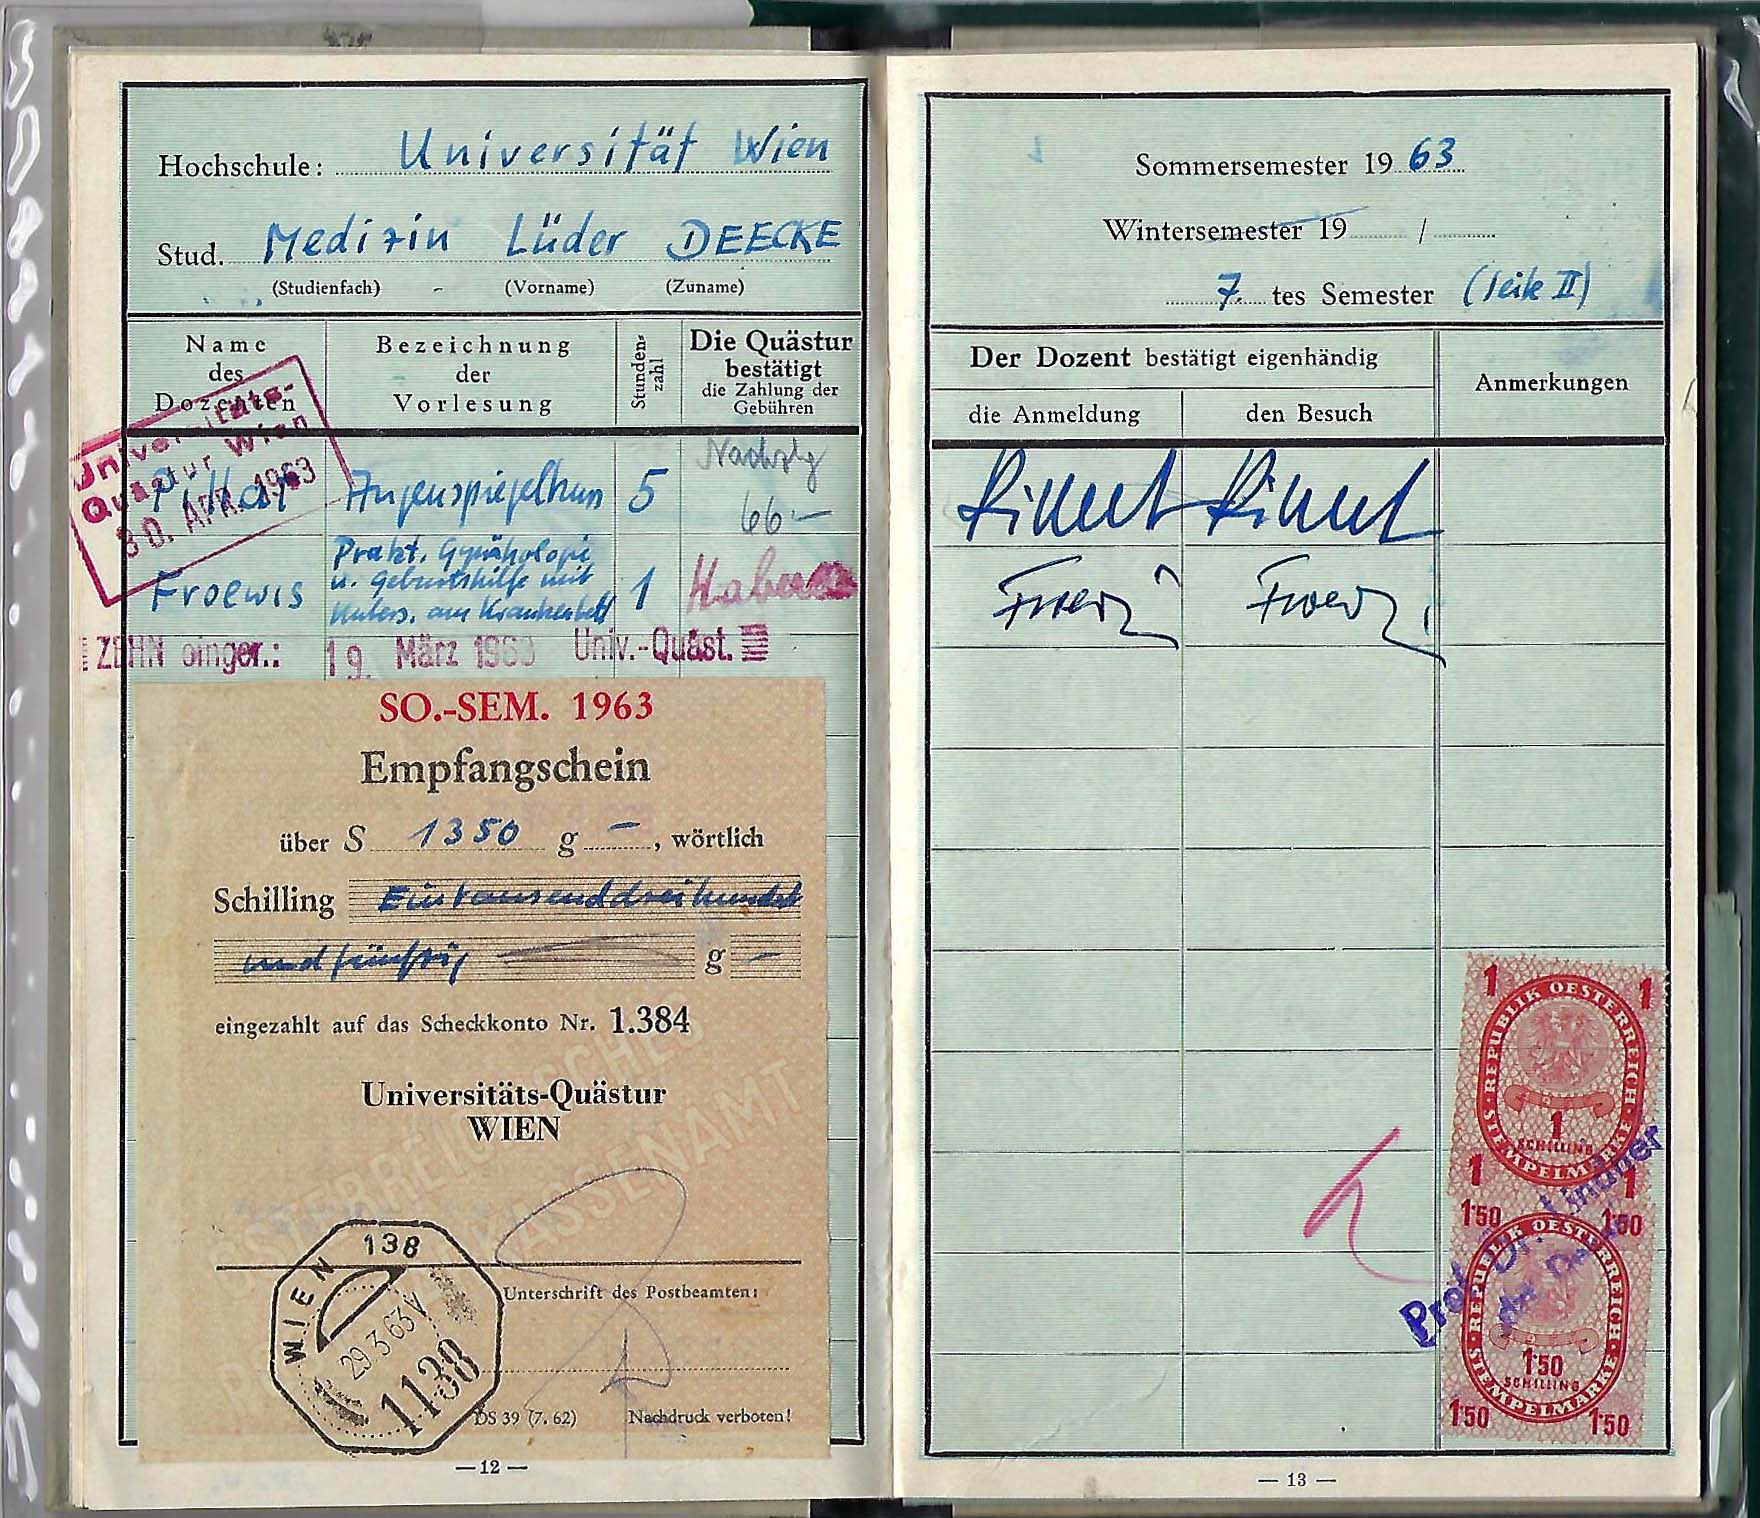 Hochschule: Universität Wien
Stud. Medizin Lüder DEECKE
(Studienfach) (Vorname) (Zuname)
Name des Dozenten
Bezeichnung der Vorlesung
Stundenzahl
Die Quästur bestätigt die Zahlung der Gebühren
Universitäts-
Quästur Wien
30. APR. 1963
Pillat Augenspiegelkurs 5
66.—
Froewis Prakt. Gynäkologie
u. Geburtshilfe mit
Unters. am Krankenbett 1
ZEHN einger.: 19. März 1963 Univ.-Quäst.
SO.-SEM. 1963
Empfangschein
über S 1350 g —, wörtlich
Schilling Eintausenddreihundert
undfünfzig g —
eingezahlt auf das Scheckkonto Nr. 1.384
Universitäts-Quästur
WIEN
ÖSTERREICHISCHES
KASSENAMT
WIEN 138
29 3 63
1138
Unterschrift des Postbeamten:
DS 39 (7. 62) Nachdruck verboten!
— 12 —
Sommersemester 19 63
Wintersemester 19 /
7. tes Semester (Seite II)
Der Dozent bestätigt eigenhändig
die Anmeldung
den Besuch
Anmerkungen
1 1
REPUBLIK OESTERREICH
1
SCHILLING
STEMPELMARKE
1 1
1·50 1·50
REPUBLIK OESTERREICH
1·50
SCHILLING
STEMPELMARKE
1·50 1·50
Prof. Dr. Lindner
— 13 —